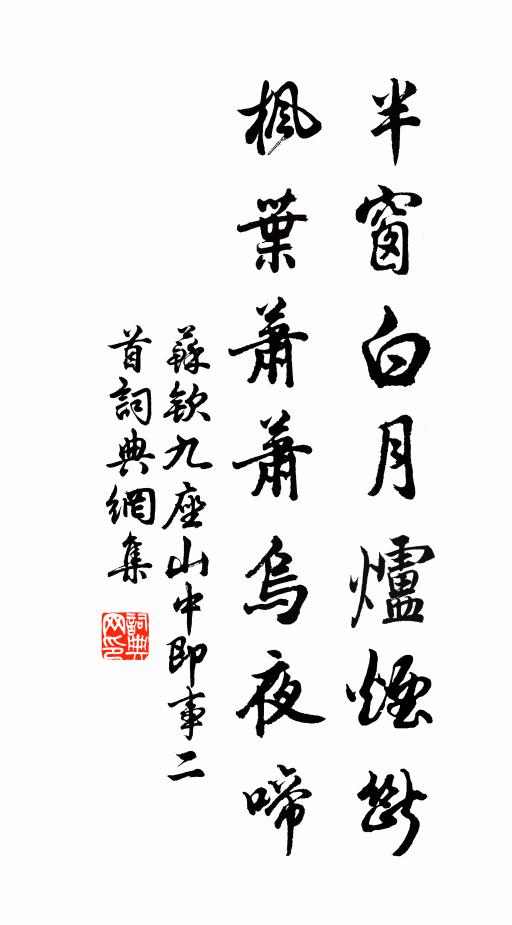 半窗白月爐煙斷
楓葉蕭蕭烏夜啼
蘇欽九座山中即事二
首詞典網集
詞典
网印